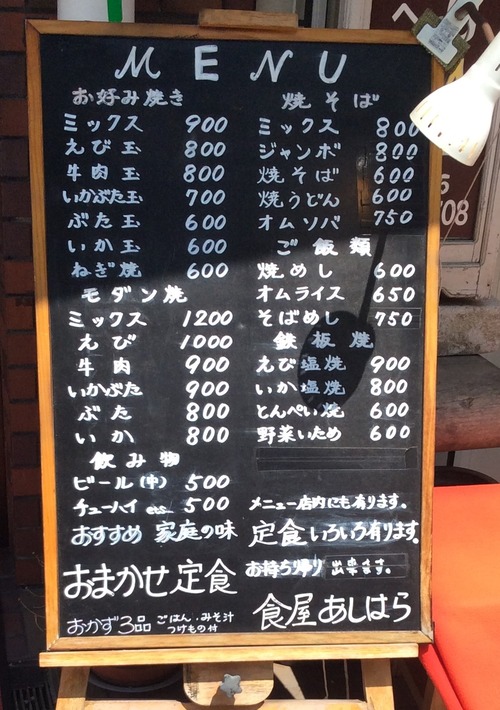 MENU
お好み焼き
ミックス 900
えび玉 800
牛肉玉 800
いかぶた玉 700
ぶた玉 600
いか玉 600
ねぎ焼 600
モダン焼
ミックス 1200
えび 1000
牛肉 900
いかぶた 900
ぶた 800
いか 800
飲み物
ビール(中) 500
チューハイetc 500
おすすめ 家庭の味
おまかせ定食
おかず3品 ごはん・みそ汁
つけもの付
焼そば
ミックス 800
ジャンボ 800
焼そば 600
焼うどん 600
オムソバ 750
ご飯類
焼めし 600
オムライス 650
そばめし 750
鉄板焼
えび塩焼 900
いか塩焼 800
とんぺい焼 600
野菜いため 600
メニュー店内にも有ります。
定食いろいろ有ります。
お持ち帰り 出来ます。
食屋あしはら
08